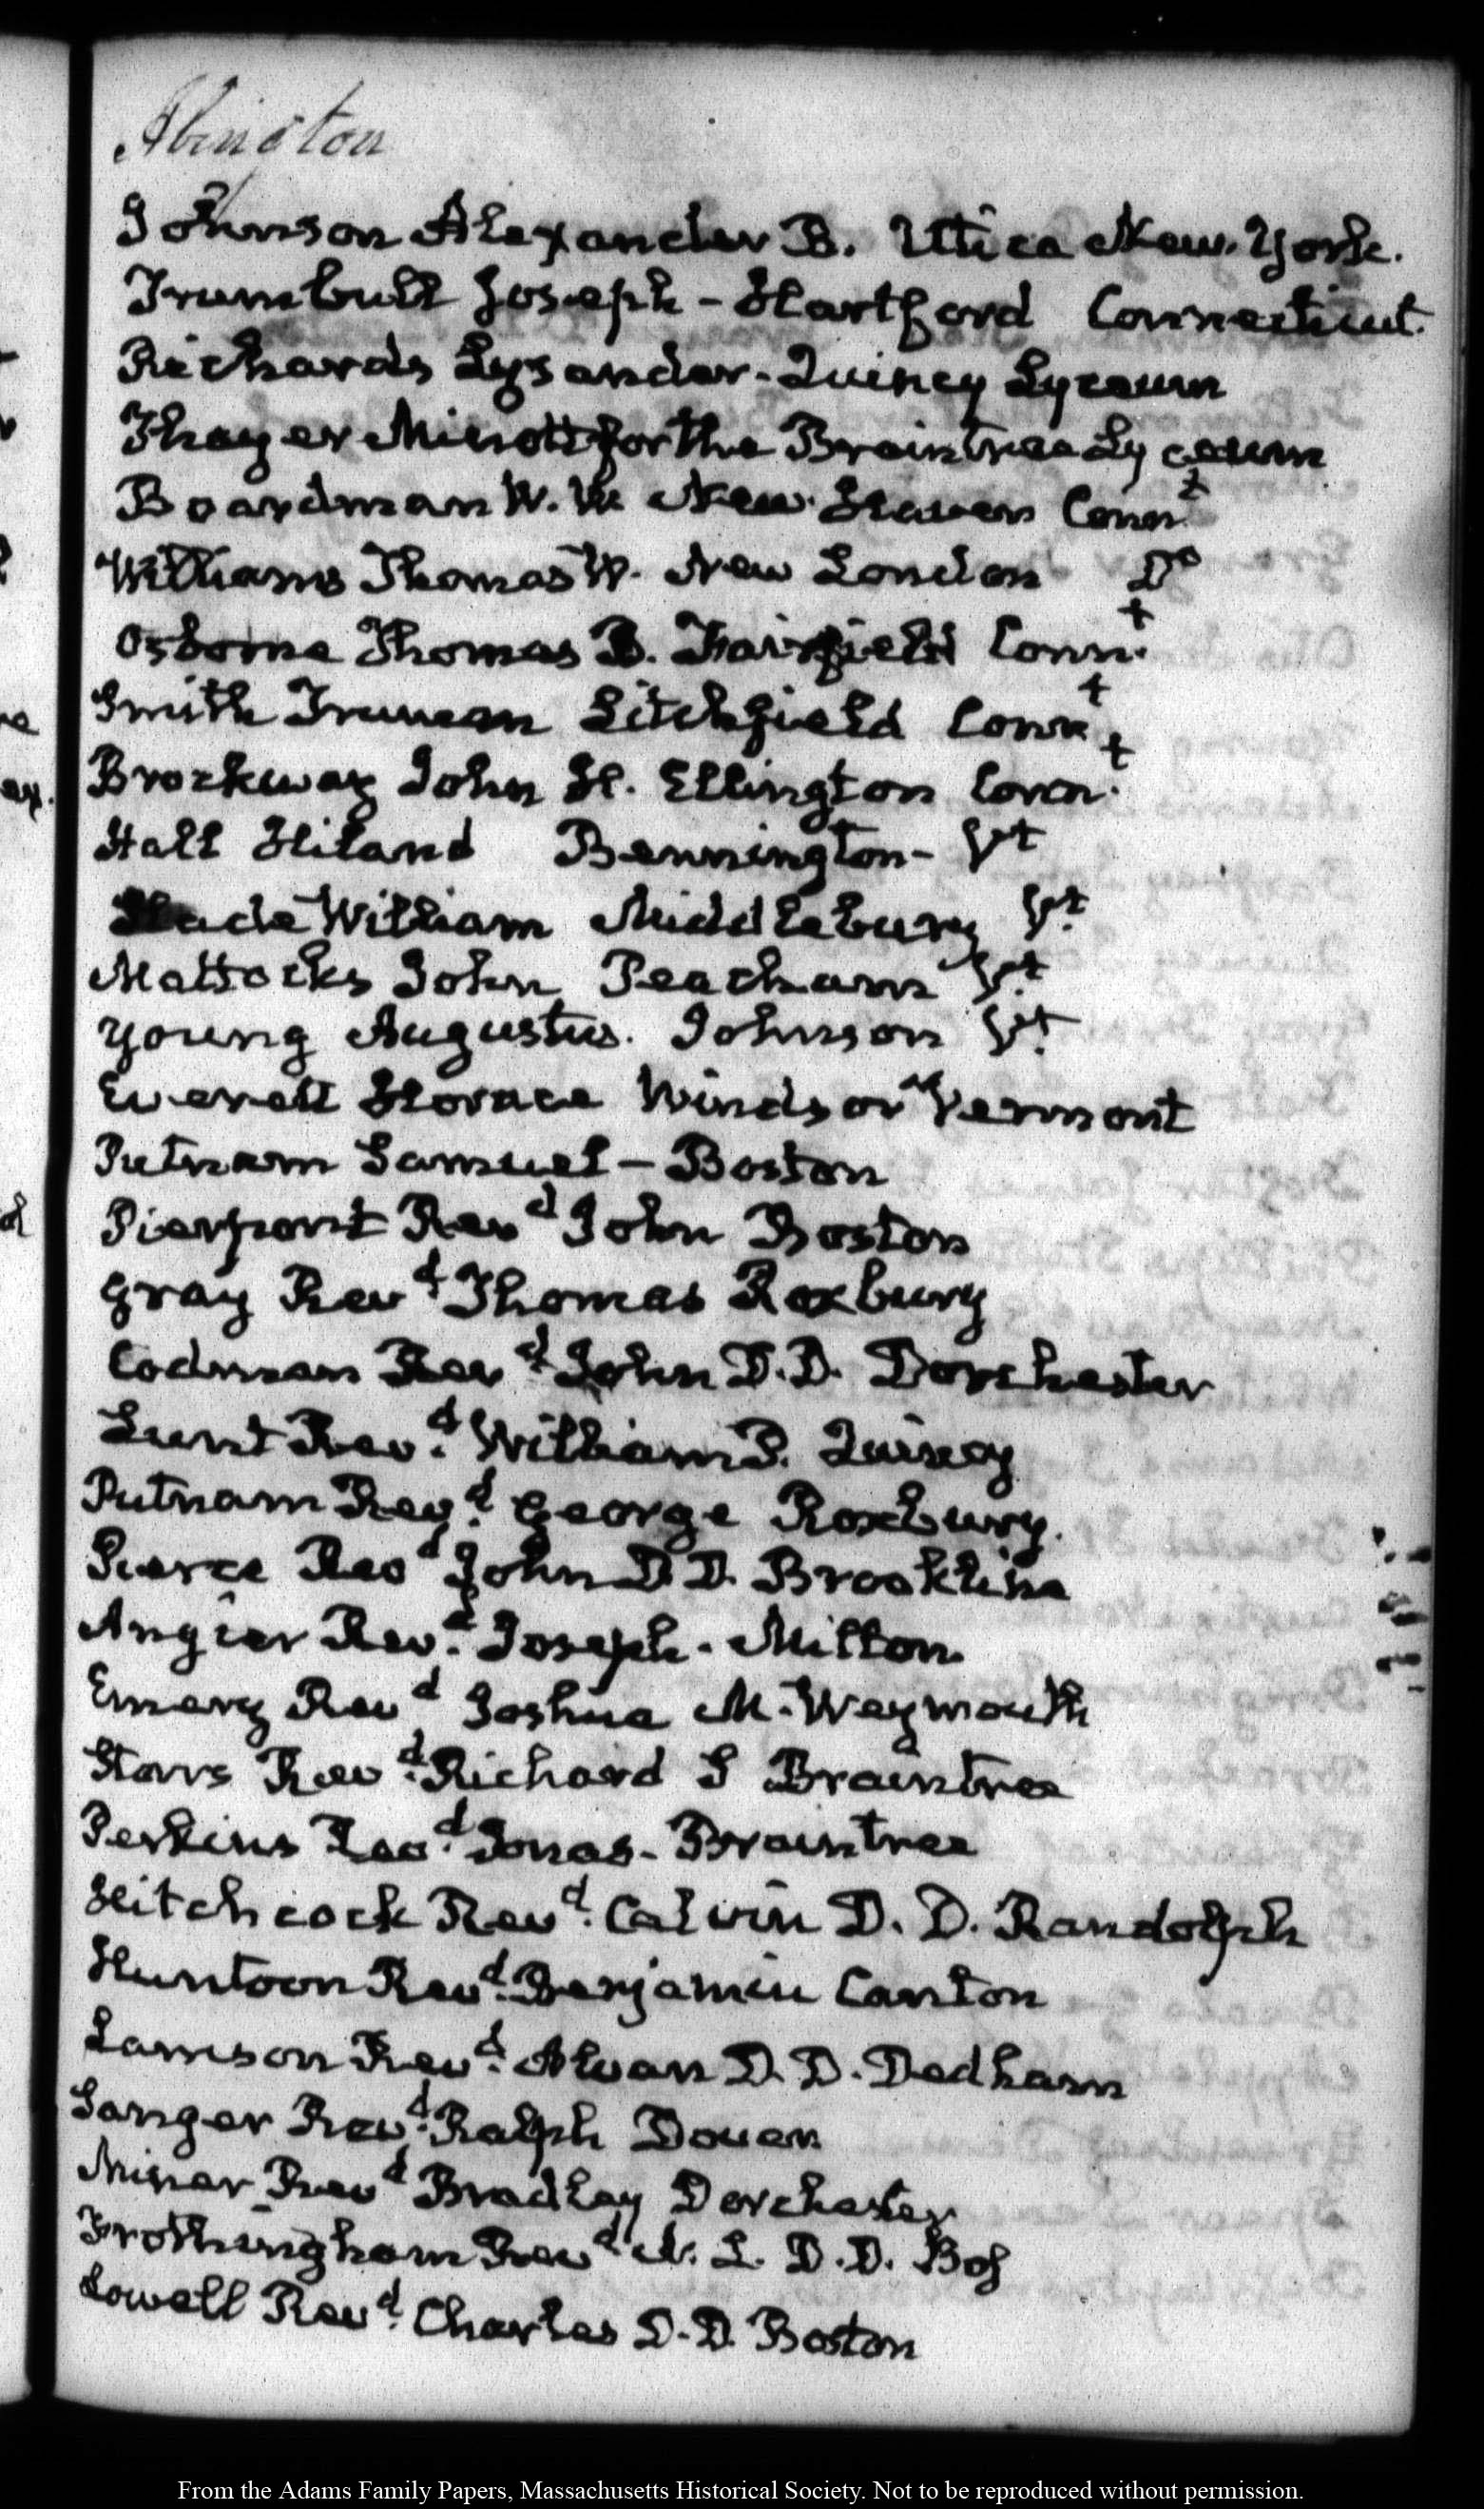 Abington
Johnson Alexander B. Utica New-York.
Trumbull Joseph - Hartford Connecticut.
Richards Lysander - Quincy Lyceum
Thayer Minott for the Braintree Lyceum
Boardman W. W. New-Haven Conn.t
Williams Thomas W. New London Do
Osborne Thomas B. Fairfield Conn.t
Smith Truman Litchfield Conn.t
Brockway John H. Ellington Conn.t
Hall Hiland Bennington - Vt
Slade William Middlebury V.t
Mattocks John Peacham V.t
Young Augustus. Johnson V.t
Everett Horace Windsor Vermont
Putnam Samuel - Boston
Pierpont Revd John Boston
Gray Revd Thomas Roxbury
Codman Rev.d John D.D. Dorchester
Lunt Rev.d William P. Quincy
Putnam Rev.d George Roxbury.
Pierce Revd John D.D. Brookline
Angier Rev.d Joseph - Milton
Emery Revd Joshua M. Weymouth
Storrs Rev.d Richard S Braintree
Perkins Rev.d Jonas - Braintree
Hitchcock Rev.d Calvin D. D. Randolph
Huntoon Rev.d Benjamin Canton
Lamson Rev.d Alvan D. D. Dedham
Sanger Rev.d Ralph Dover
Miner Revd Bradley Dorchester
Frothingham Revd N. L. D. D. Bos
Lowell Rev.d Charles D. D. Boston
From the Adams Family Papers, Massachusetts Historical Society. Not to be reproduced without permission.